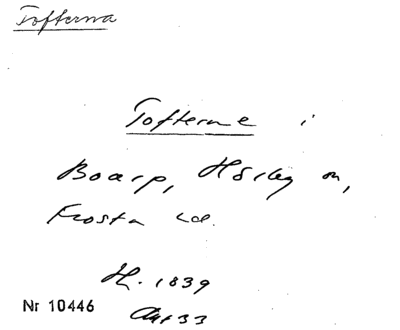 Tofterna
Tofterne i
Boarp, Hörby sn,
Frosta hd.
H. 1839
Nr 10446
Akt 33